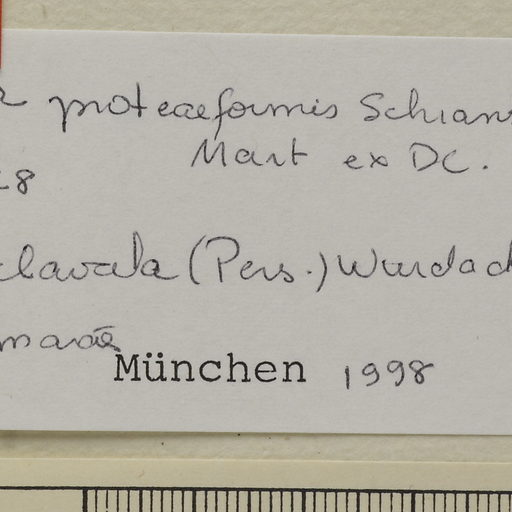 a proteaeformis Schran
Mart ex DC.
28
clavata (Pers.) Wurdac
marães
München 1998